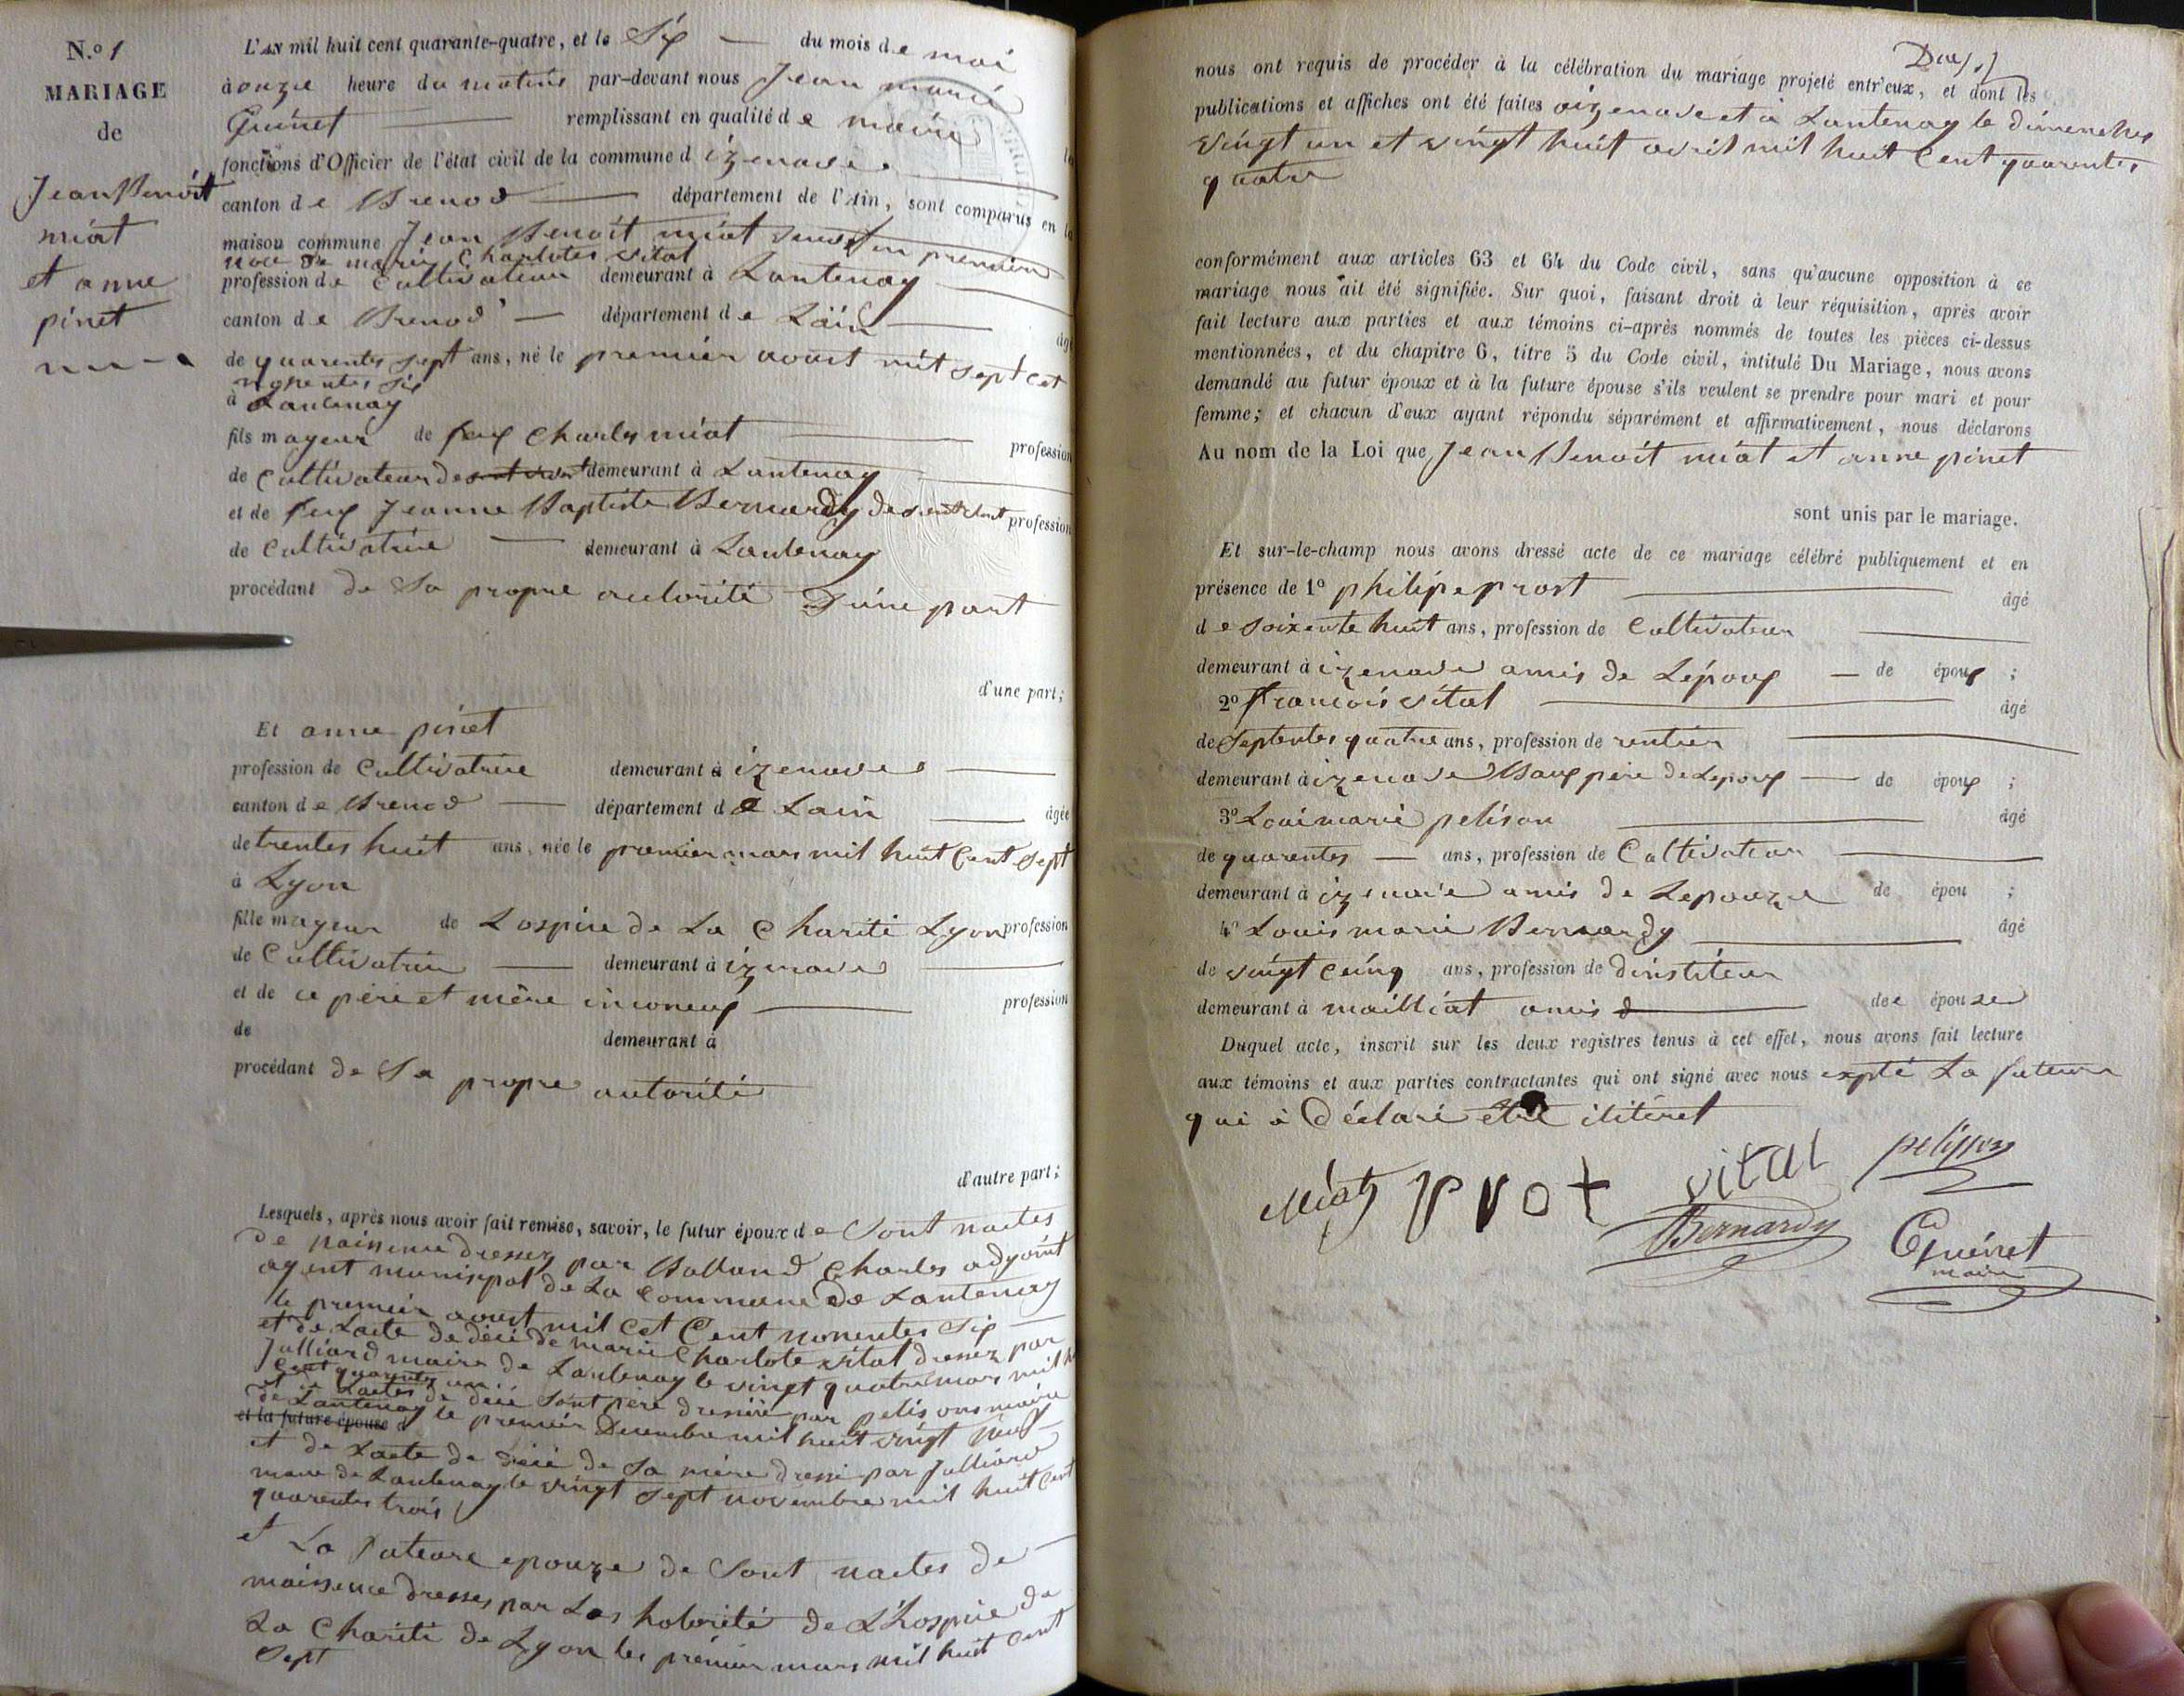 N.o 1
MARIAGE
de
Jean Benoit
miat
et anne
pinet
L'AN mil huit cent quarante-quatre, et le Six du mois de mai
à onze heure du matins par-devant nous Jean marie
Guinet remplissant en qualité de maire
fonctions d'Officier de l'état civil de la commune d izenave
canton de Brenod département de l'Ain, sont comparus en la
maison commune Jean Benoit miat veuf en premier
noce de marie Charlotes vital
profession de Cultivateur demeurant à Lantenay
canton de Brenod département de Lain âgé
de quarentes sept ans, né le premier aoust mil sept cet
nonentes six
à Lantenay
fils mayeur de feux Charles miat profession
de Cultivateur de demeurant à Lantenay
et de feux Jeanne Baptiste Bernardy de profession
de Cultivatrice demeurant à Lantenay
procédant de Sa propre autorité D'une part
d'une part;
Et anne pinet
profession de Cultivatrice demeurant à izenave
canton de Brenod département de Lain âgée
de trentes huit ans, née le premier mars mil huit Cent Sept
à Lyon
fille mayeur de Lospice de La Charité Lyon profession
de Cultivatrice demeurant à izenave
et de ce père et mère inconeux profession
de demeurant à
procédant de Sa propre autorité
d'autre part;
Lesquels, après nous avoir fait remise, savoir, le futur époux de Sont nactes
de naissence dressez par Balland Charles adjoint
agent municipal de La Commune de Lantenay
le premier aoust mil cet Cent nonentes Six
et de Lacte de décé de marie Charlote vital dressez par
Julliard maire de Lantenay le vingt quatre mars mil h
Cent quarentes un
et de Lactes de décé Sont père dressé par pelisons maire
de Lantenay le premier Decembre mil huit vingt neuf
et la future épouse d
et de Lacte de décé de Sa mère dressé par Julliard
maire de Lantenay le vingt Sept novembre mil huit Cent
quarentes trois
et La futeure epouze de Sont nactes de
naissence dresses par Les hotorité de L'hospice de
La Charité de Lyon les prémier mars mil huit Cent
Sept
nous ont requis de procéder à la célébration du mariage projeté entr'eux, et dont les
publications et affiches ont été faites à izenave et à Lantenay le dimenches
vingt un et vingt huit avril mil huit Cent quarentes
quatre
conformément aux articles 63 et 64 du Code civil, sans qu'aucune opposition à ce
mariage nous ait été signifiée. Sur quoi, faisant droit à leur réquisition, après avoir
fait lecture aux parties et aux témoins ci-après nommés de toutes les pièces ci-dessus
mentionnées, et du chapitre 6, titre 5 du Code civil, intitulé Du Mariage, nous avons
demandé au futur époux et à la future épouse s'ils veulent se prendre pour mari et pour
femme; et chacun d'eux ayant répondu séparément et affirmativement, nous déclarons
Au nom de la Loi que Jean Benoit miat et anne pinet
sont unis par le mariage.
Et sur-le-champ nous avons dressé acte de ce mariage célébré publiquement et en
présence de 1o philipe prost âgé
de soixente huit ans, profession de Cultivateur
demeurant à izenave amis de Lépoux de époux ;
2o françois vital âgé
de Septentes quatre ans, profession de rentier
demeurant à izenave Baux père de Lepoux de époux ;
3o Loui marie pelison âgé
de quarentes ans, profession de Cultivateur
demeurant à izenave amis de Lepouze de épou ;
4o Louis marie Bernardy âgé
de vingt cinq ans, profession de dinstiteur
demeurant à mailliat amis d de e épouze
Duquel acte, inscrit sur les deux registres tenus à cet effet, nous avons fait lecture
aux témoins et aux parties contractantes qui ont signé avec nous expté La futeure
qui à Déclaré etre ilitéret
Miat prot vital pelisson
Bernardy Guinet
maire